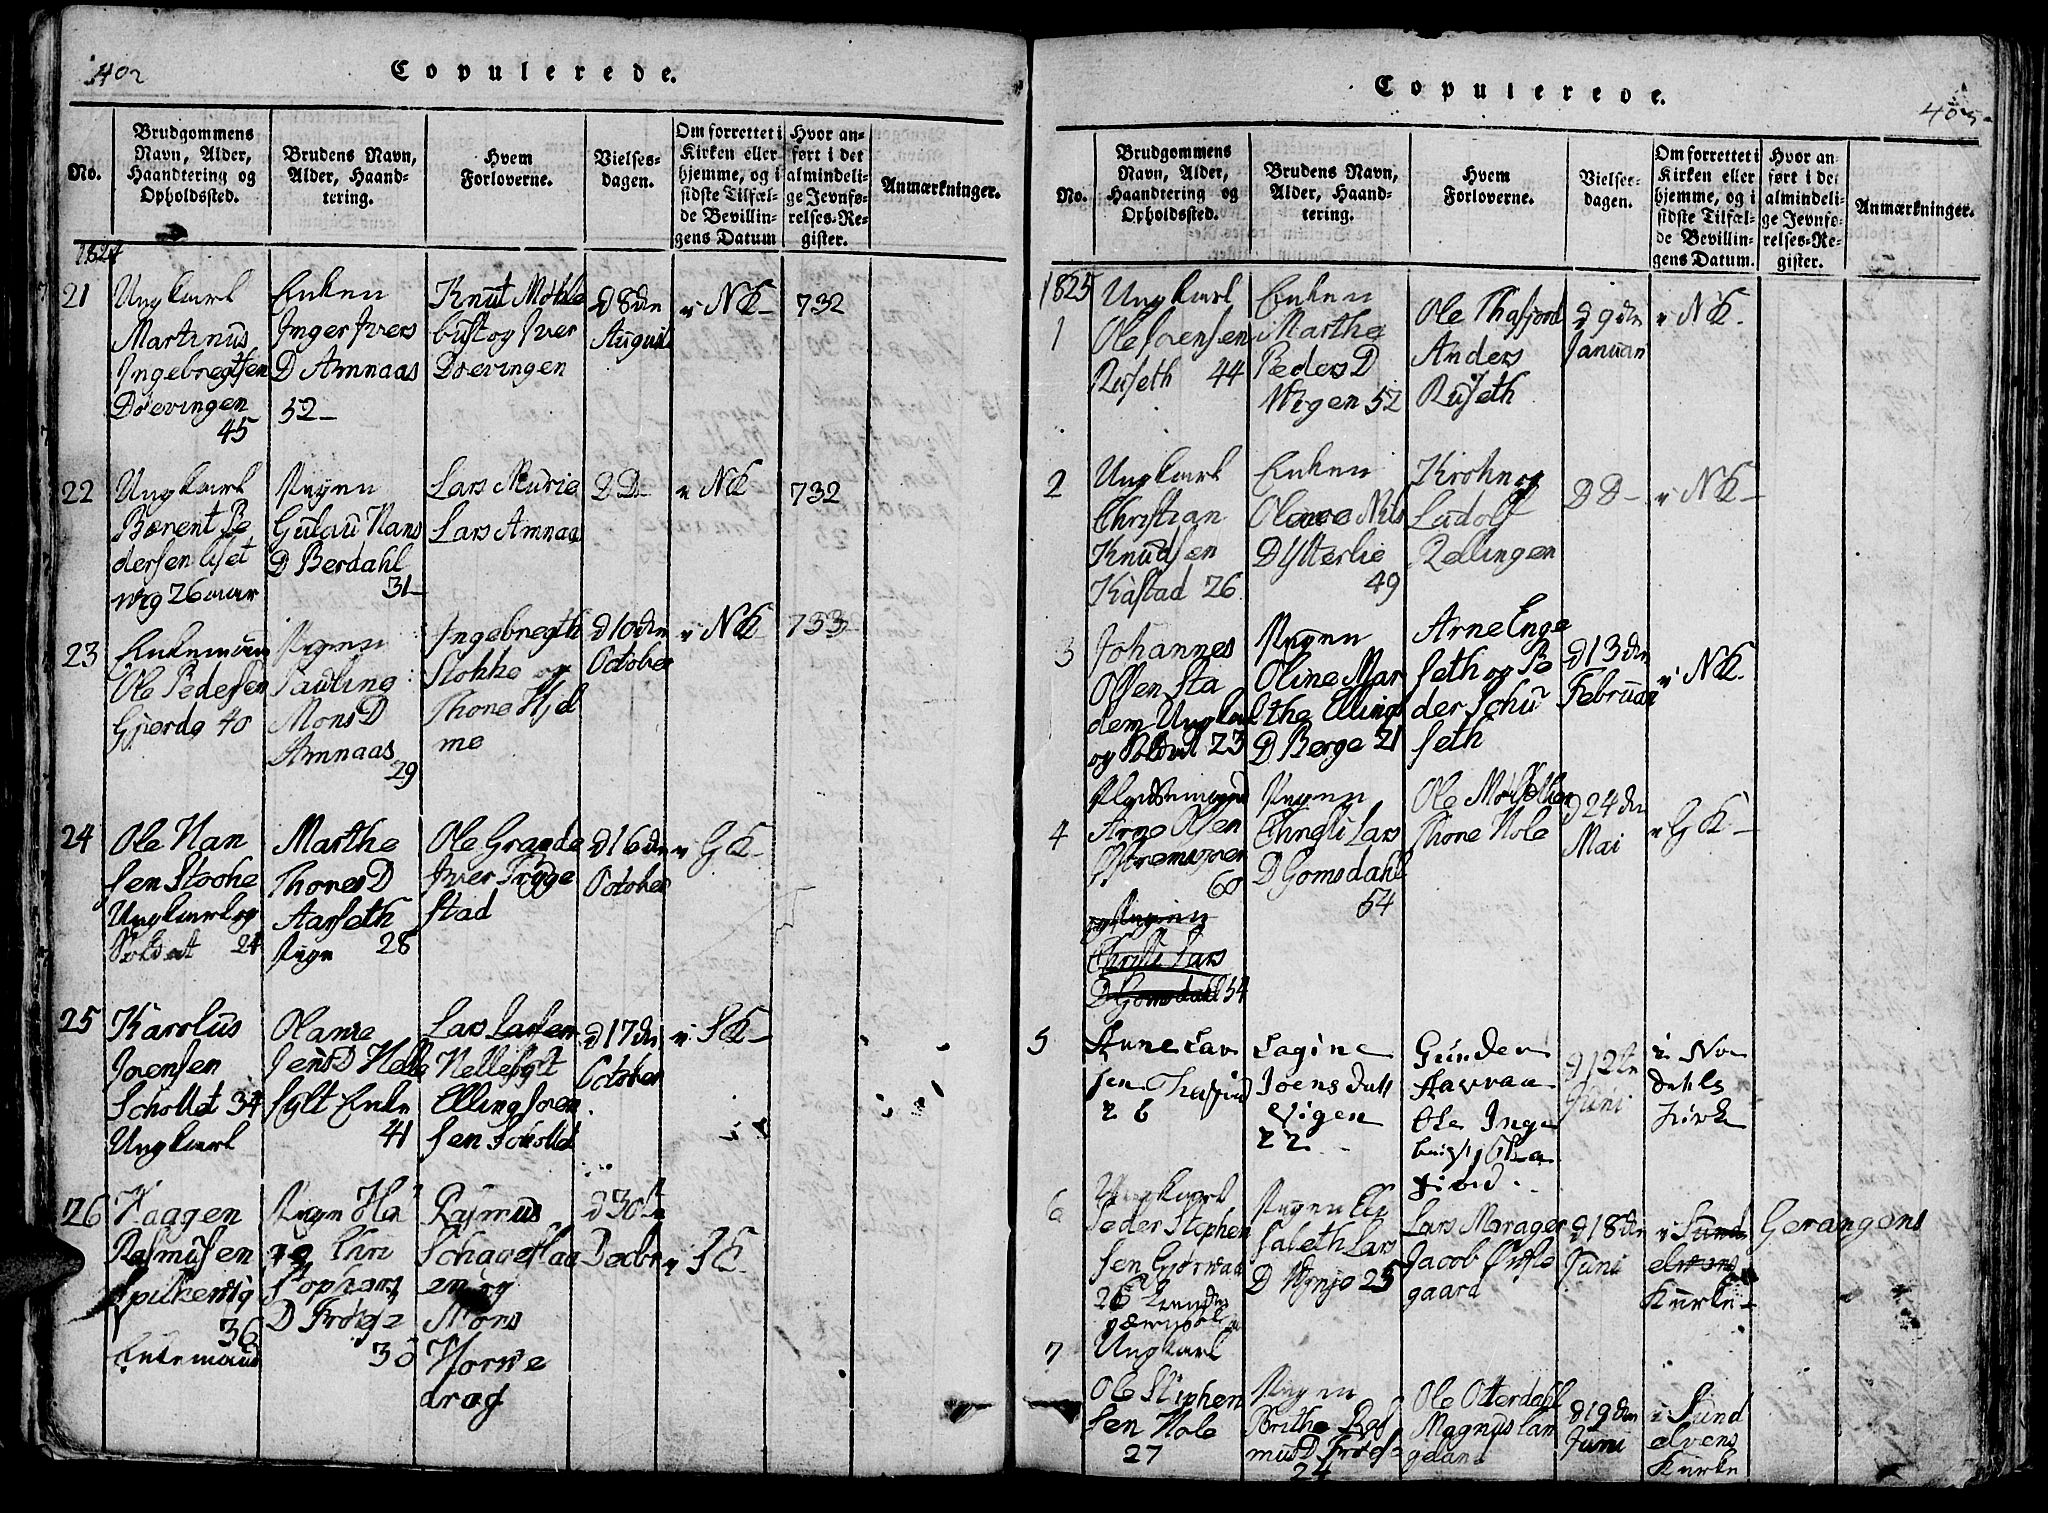 402
Copulerede.
No.
Brudgommens Navn, Alder, Haandtering og Opholdssted.
Brudens Navn, Alder, Haandtering.
Hvem Forloverne.
Vielsesdagen.
Om forrettet i Kirken eller hjemme, og i sidste Tilfælde Bevillingens Datum
Hvor anført i det almindelige Jevnførelses-Register.
Anmærkninger.
1824
21
Ungkarl
Martinus
Ingebregtsen
Døevingen
45
Enken
Inger Ivers
D Amnaas
52
Knut Møhle
bust og Iver
Døevingen
d 8de
August
i NK
732
22
Ungkarl
Berent Pe
dersen
26 aar
Pigen
Gulau Hans
D Berdahl
31
Lars Murie
Lars Amnaa
D D
i NK
732
23
Enkemand
Ole Pedersen
Gjerde 40
Pigen
Pauline
Mons D
Amnaas
29
Ingebregth
Stokke og
Thore Hjel
me
d 10de
October
i NK
733
24
Ole Han
sen Stoohe
Ungkarl og
Soldat 24
Marthe
Thores D
Aarseth
Pige 28
Ole Grande
Iver Trygge
stad
d 16de
October
i GK
25
Karolus
Joensen
Schottet 34
Ungkarl
Olane
Jens D Helle
sylt Enke
41
Lars Larsen
Hellesylt
Elling Joen
sen
d 17de
October
i SK
26
Haagen
Rasmusen
Spilkevig
36
Enkemand
Pigen
Stophers
D Frøise
30
Rasmus
Mons
Horne
drag
d 30te
Decbr
i SK
Copulerede.
405
No.
Brudgommens Navn, Alder, Haandtering og Opholdssted.
Brudens Navn, Alder, Haandtering.
Hvem Forloverne.
Vielsesdagen.
Om forrettet i Kirken eller hjemme, og i sidste Tilfælde Bevillingens Datum.
Hvor anført i det almindelige Jevnførelses-Register.
Anmærkninger.
1825
1
Ungkarl
Ole Joensen
Ruseth 44
Enken
Marthe
Peders D
Wigen 52
Ole Thafjord
Anders
Ruseth
d 9de
Januari
i NK.
2
Ungkarl
Christian
Knudsen
Kastad 26
Enken
Olave Nils
D Ytterlie
49
Krohn og
Ludolf
Rellingen
D D
i NK
3
Johannes
Olsen Sta
dem Ungkarl
og Soldat 23
Pigen
Oline Mar
the Ellings
D Berge 21
Arne Enge
seth og Pe
der Schu
seth
d 13de
Februari
i NK.
4
Pladsemand
Arne Olsen
60
og Pigen
Christi Lars
D Gomsdahl 54
Pigen
Christi Lars
D Gomsdahl
54
Ole
Thore Hole
d 24de
Mai
i GK
5
Arne Lar
sen
26
Lagine
Joens Datt
Vigen
22
Gunder
Ole Inge
d 12te
Juni
i No
dahls
Kirke
6
Ungkarl
Peder Stephen
sen
26
Pigen Eli
sabeth Lars
D 25
Lars Marager
Jacob
gaard
d 18de
Juni
i Sund
elvens
Kirke
Gerangens
7
Ungkarl
Ole Stephen
sen Hole
27
Pigen
Brithe Ras
mus D Frøise
24
Ole Otterdahl
Magnus Lan
geland
d 19de
Juni
i Sund
elvens
Kirke